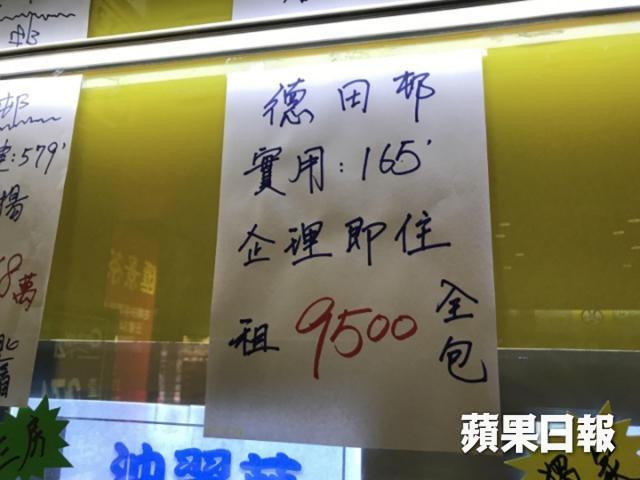 邨
邨
建:579'
揚
8萬
三房
德田邨
實用:165'
企理即住
租 9500 全包
蘋果日報